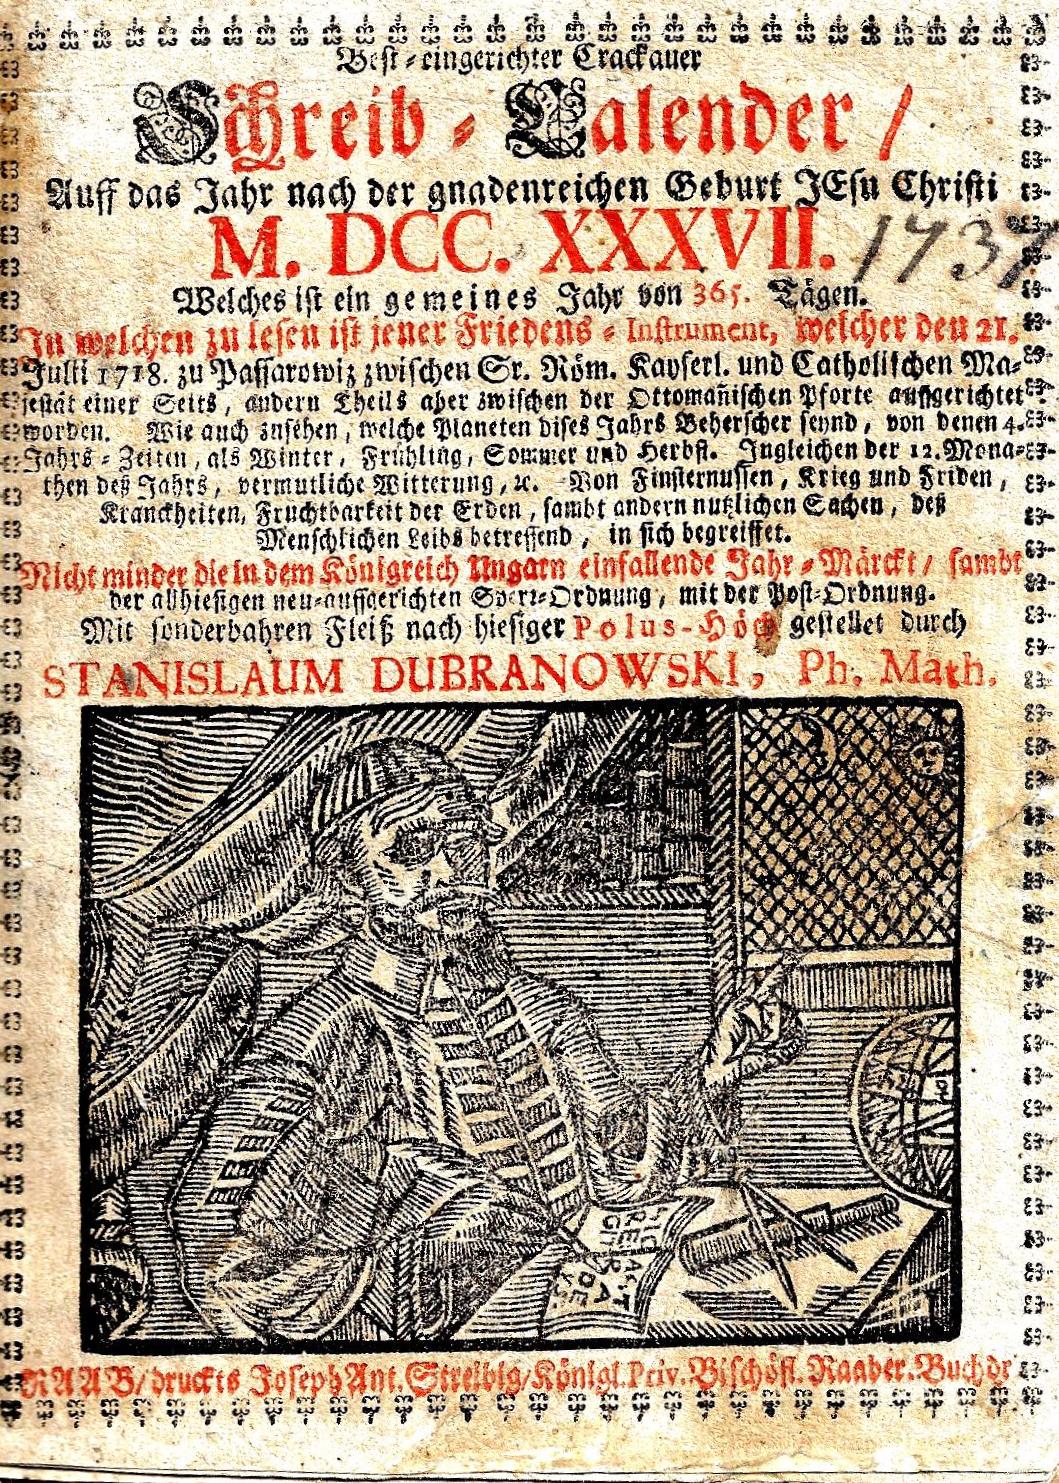 Best-eingerichter Crackauer
Schreib-Calender /
Auff das Jahr nach der gnadenreichen Geburt JEsu Christi
M. DCC. XXXVII.
1737
Welches ist ein gemeines Jahr von 365. Tägen.
In welchen zu lesen ist jener Friedens-Instrument, welcher den 21.
Julii 1718. zu Passarowiz zwischen Sr. Röm. Kayserl. und Catholischen Ma-
jestät einer Seits, andern Theils aber zwischen der Ottomañischen Pforte auffgerichtet
worden. Wie auch zusehen, welche Planeten dises Jahrs Beherscher seynd, von denen 4.
Jahrs-Zeiten, als Winter, Frühling, Sommer und Herbst. Ingleichen der 12. Mona-
then deß Jahrs, vermutliche Witterung, ꝛc. Von Finsternussen, Krieg und Friden,
Kranckheiten, Fruchtbarkeit der Erden, sambt andern nutzlichen Sachen, deß
Menschlichen Leibs betreffend, in sich begreiffet.
Nicht minder die in dem Königreich Ungarn einfallende Jahr-Märckt / sambt
der allhiesigen neu-auffgerichten Sperr-Ordnung, mit der Post-Ordnung.
Mit sonderbahren Fleiß nach hiesiger Polus-Höch gestellet durch
STANISLAUM DUBRANOWSKI, Ph. Math.
RAAB / druckts Joseph Ant. Streibig / Königl. Priv. Bischöfl. Raaber. Buchdr